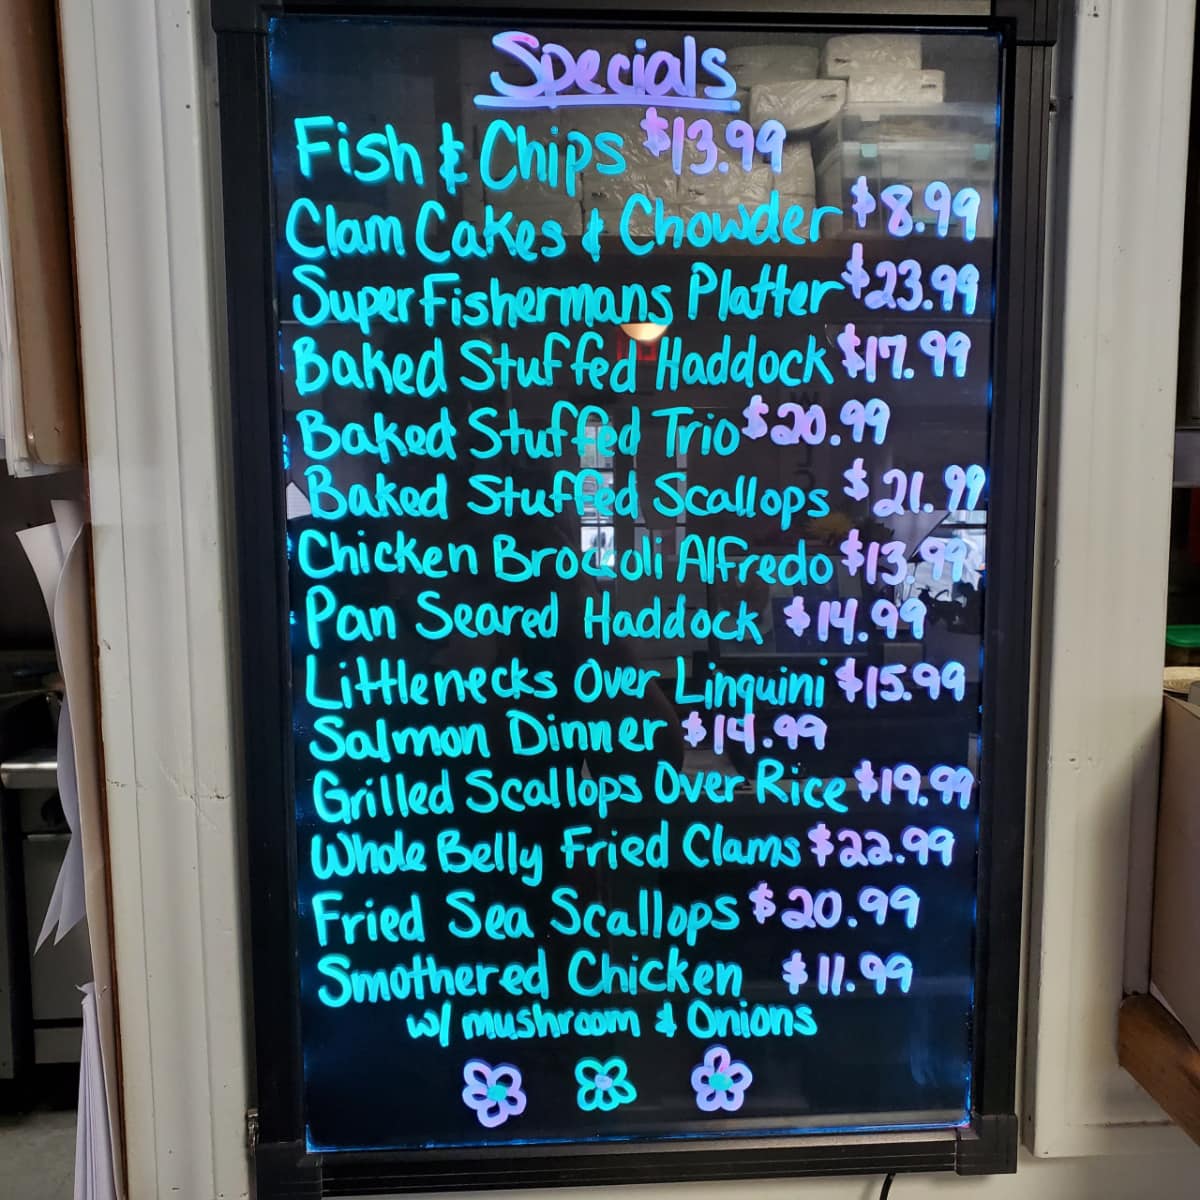 Specials
Fish & Chips $13.99
Clam Cakes & Chowder $8.99
Super Fishermans Platter $23.99
Baked Stuffed Haddock $17.99
Baked Stuffed Trio $20.99
Baked Stuffed Scallops $21.99
Chicken Broccoli Alfredo $13.99
Pan Seared Haddock $14.99
Littlenecks Over Linguini $15.99
Salmon Dinner $14.99
Grilled Scallops Over Rice $19.99
Whole Belly Fried Clams $22.99
Fried Sea Scallops $20.99
Smothered Chicken $11.99
w/ mushroom & Onions